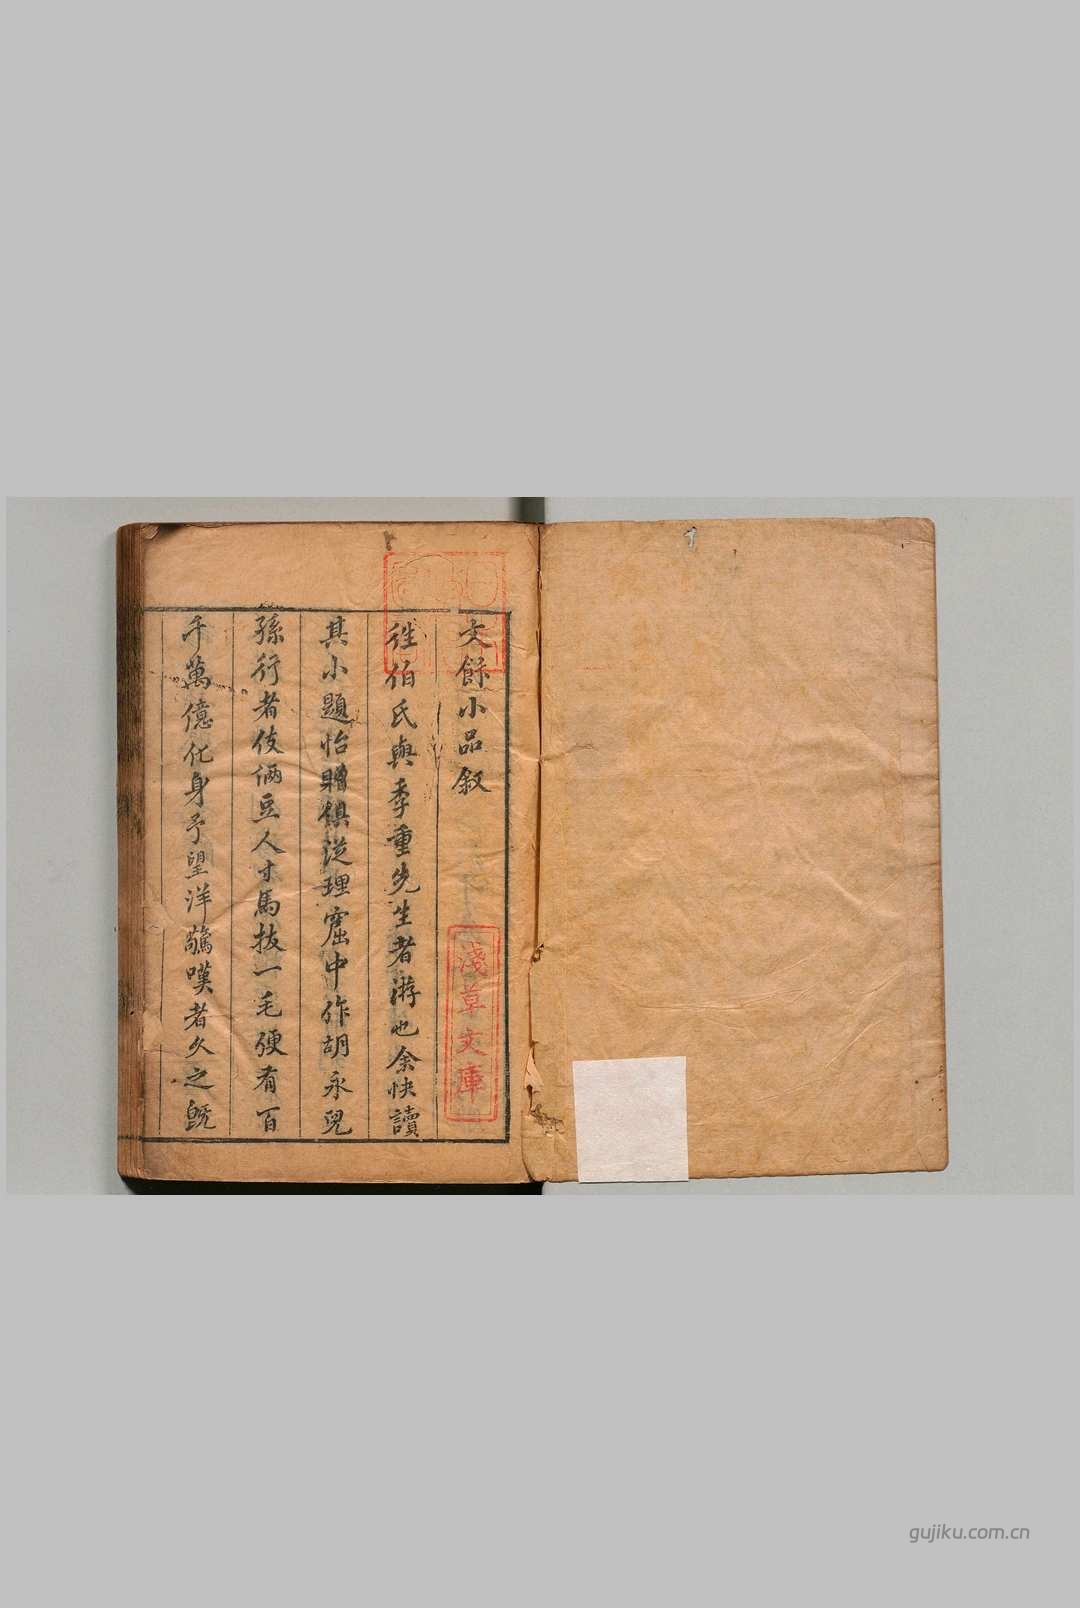 文餘小品叙
徃伯氏與季重先生者游也余快讀
其小題怡贈俱従理窟中作胡永兒
孫行者伎倆豆人寸馬扳一毛便有百
千萬億化身予望洋驚嘆者久之旣
淺草文庫
gujiku.com.cn